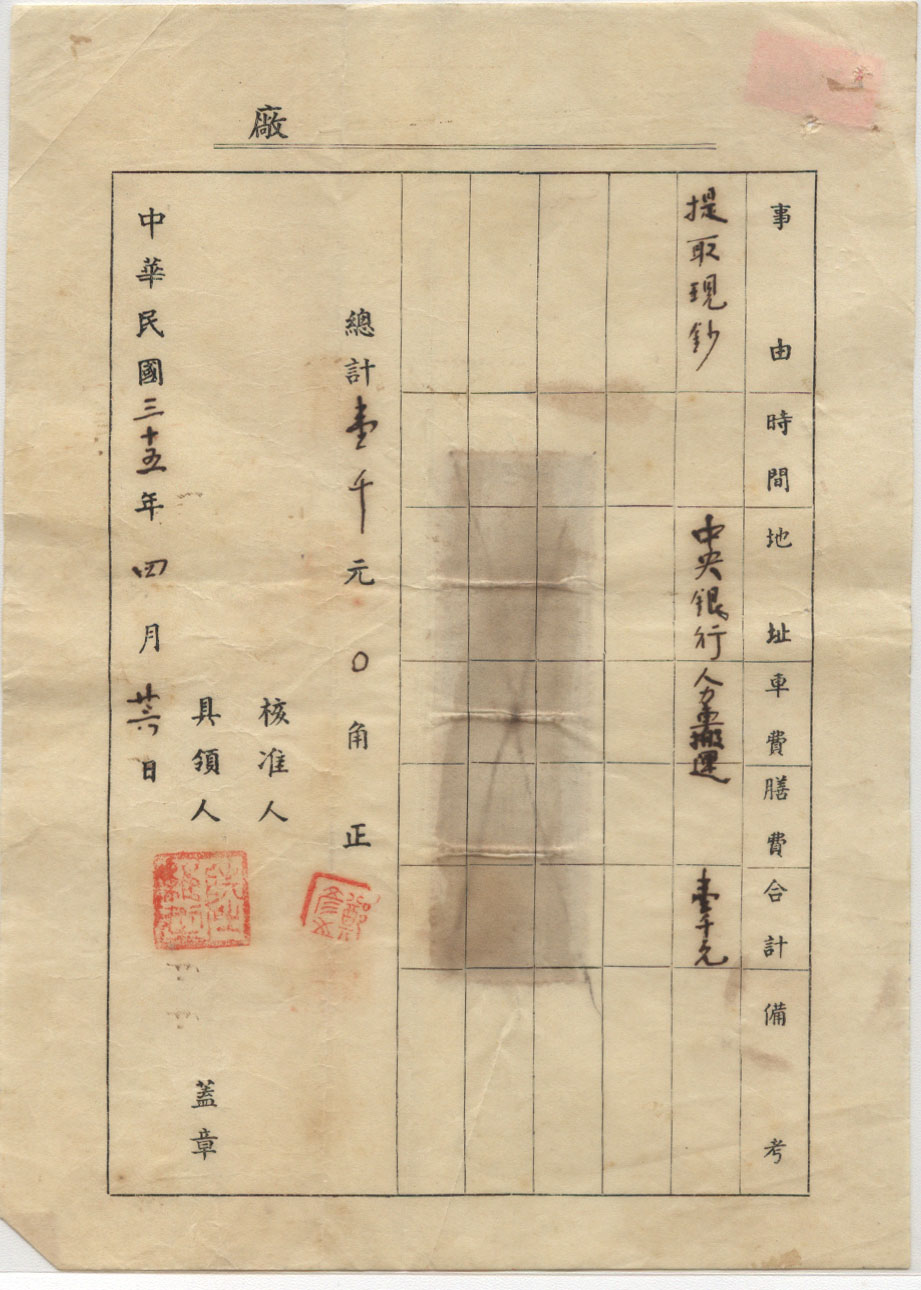 廠
事由 時間 地址 車費 膳費 合計 備考
提取現鈔 中央銀行 人力車搬運 壹千元
總計壹千元〇角正
核准人
具領人 蓋章
中華民國三十五年四月廿六日